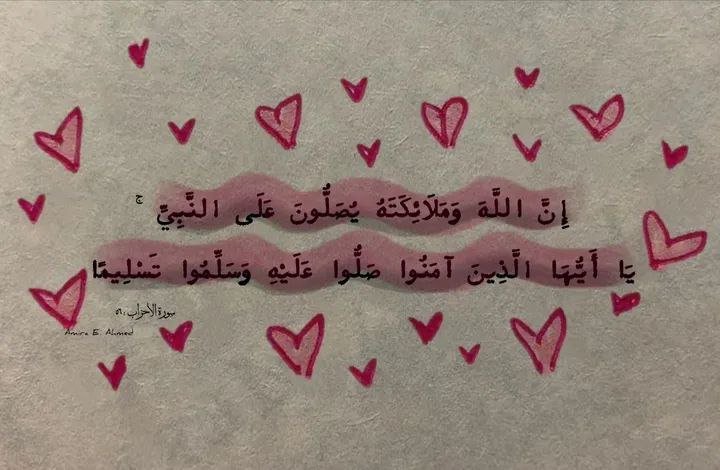 إِنَّ اللَّهَ وَمَلَائِكَتَهُ يُصَلُّونَ عَلَى النَّبِيِّ ۚ
يَا أَيُّهَا الَّذِينَ آمَنُوا صَلُّوا عَلَيْهِ وَسَلِّمُوا تَسْلِيمًا
سورة الأحزاب، ٥٦
Amira E. Ahmed